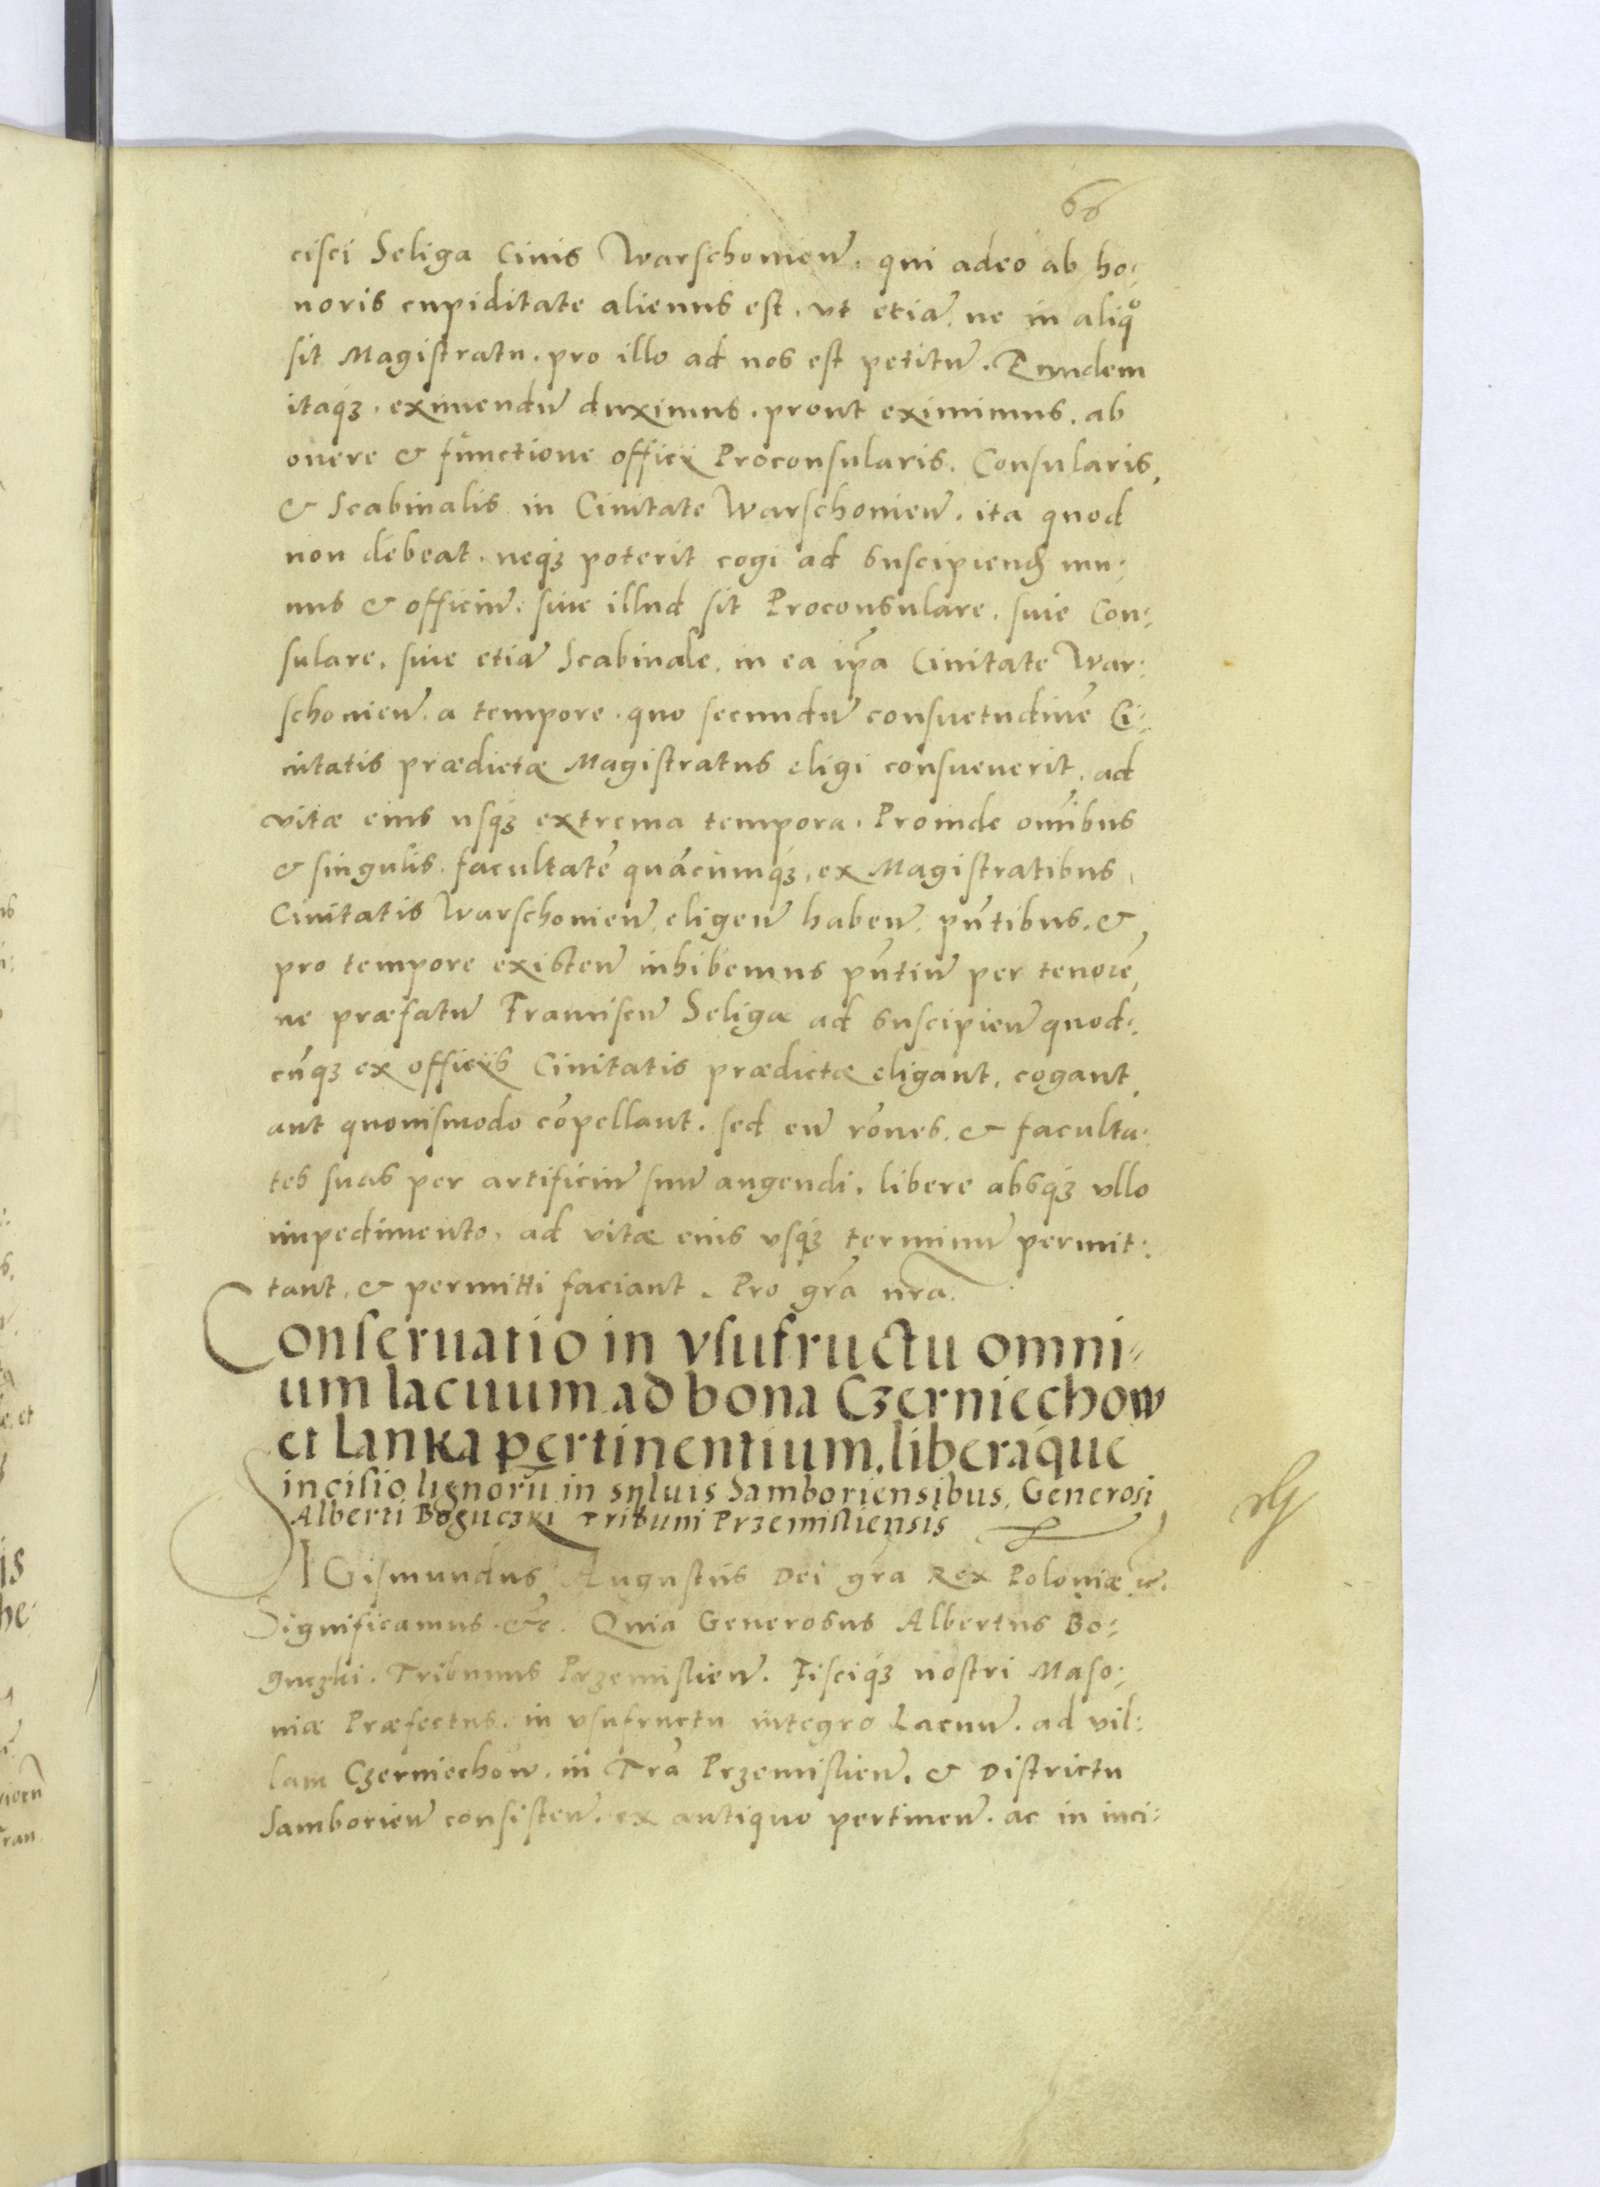 66
cisci Seliga Civis Warschovień. qui adeo ab ho:
noris cupiditate alienus est, vt etiā, ne in aliqº
sit Magistratu, pro illo ad nos est petitū. Eundem
itaqȝ, eximendū duximus, prout eximimus, ab
onere & functione officij Proconsularis, Consularis,
& Scabinalis in Civitate Warschovień. ita quod
non debeat, neqȝ poterit cogi ad suscipiend mu:
nus & officiū, sive illud sit Proconsulare, sive Con:
sulare, sive etiā Scabinale, in ea ip̄a Civitate War:
schovień. a tempore, quo secundū consuetudinē Ci:
vitatis prædictæ Magistratus eligi consueverit, ad
vitæ eius usqȝ extrema tempora. Proinde om̄ibus
& singulis, facultatē quācumqȝ, ex Magistratibus,
Civitatis Warschovień eligeń habeń, pn̄tibus, &
pro tempore existeń inhibemus pn̄tiū per tenorē,
ne præfatū Franciscū Seligæ ad suscipień quod:
cūqȝ ex officijs Civitatis prædictæ eligant, cogant
aut quovismodo cōpellant. sed eū rōnes, & faculta:
tes suas per artificiū suū augendi, libere absqȝ vllo
impedimento, ad vitæ eius vsqȝ terminū permit:
tant, & permitti faciant. Pro gr̄a nr̄a.
Conseruatio in vsufructu omni:
um lacuum ad bona Czerniechow
et Lanka pertinentium, liberaque
incisio lignorū in syluis Samboriensibus, Generosi
Alberti Boguczki Tribuni Przemisliensis
SIGismundus Augustus Dei gr̄a Rex Poloniæ &c.
Significamus &c. Quia Generosus Albertus Bo:
guczki. Tribunus Przemislień. Fisciqȝ nostri Maso:
viæ Præfectus, in vsufructu integro Lacuū, ad vil:
lam Czerniechow, in Tr̄a Przemislień, & Districtu
Samborień consisteń. ex antiquo pertineń. ac in inci: